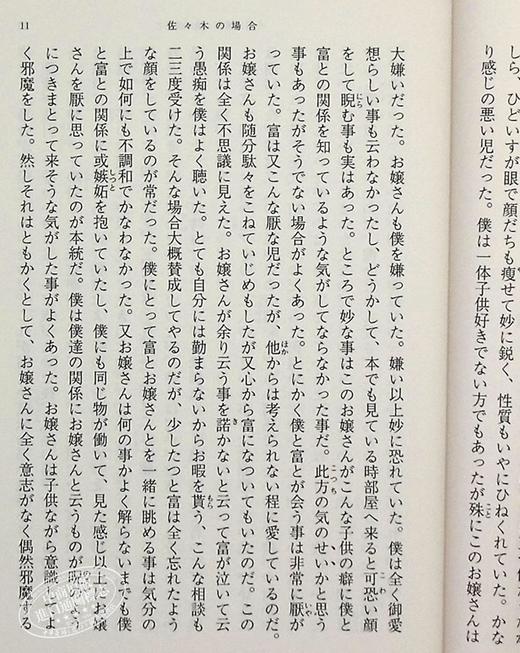 しら、ひどいすが眼で顔だちも痩せて妙に鋭く、性質もいやにひねくれていた。かな
り感じの悪い児だった。僕は一体子供好きでない方でもあったが殊にこのお嬢さんは
11 佐々木の場合
大嫌いだった。お嬢さんも僕を嫌っていた。嫌い以上妙に恐れていた。僕は全く御愛
想らしい事も云わなかったし、どうかして、本でも見ている時部屋へ来ると可恐い顔
をして睨む事も実はあった。ところで妙な事はこのお嬢さんがこんな子供の癖に僕と
富との関係を知っているような気がしてならなかった事だ。此方の気のせいかと思う
事もあったがそうでない場合がよくあった。とにかく僕と富とが会う事は非常に厭が
っていた。富は又こんな厭な児だったが、他からは考えられない程に愛しているのだ。
お嬢さんも随分駄々をこねていじめもしたが又心から富になついてもいたのだ。この
関係は全く不思議に見えた。お嬢さんが余り云う事を諾かないと云って富が泣いて云
う愚痴を僕はよく聴いた。とても自分には勤まらないからお暇を貰う、こんな相談も
二三度受けた。そんな場合大概賛成してやるのだが、少したつと富は全く忘れたよう
な顔をしているのが常だった。僕にとって富とお嬢さんとを一緒に眺める事は気分の
上で如何にも不調和でかなわなかった。又お嬢さんは何の事かよく解らないまでも僕
と富との関係に或嫉妬を抱いていたし、僕にも同じ物が働いて、見た感じ以上にお嬢
さんを厭に思っていたのが本統だ。僕は僕達の関係にお嬢さんと云うものが呪のよう
につきまとって来そうな気がした事がよくあった。お嬢さんは子供ながら意識してよ
く邪魔をした。然しそれはともかくとして、お嬢さんに全く意志がなく偶然邪魔する